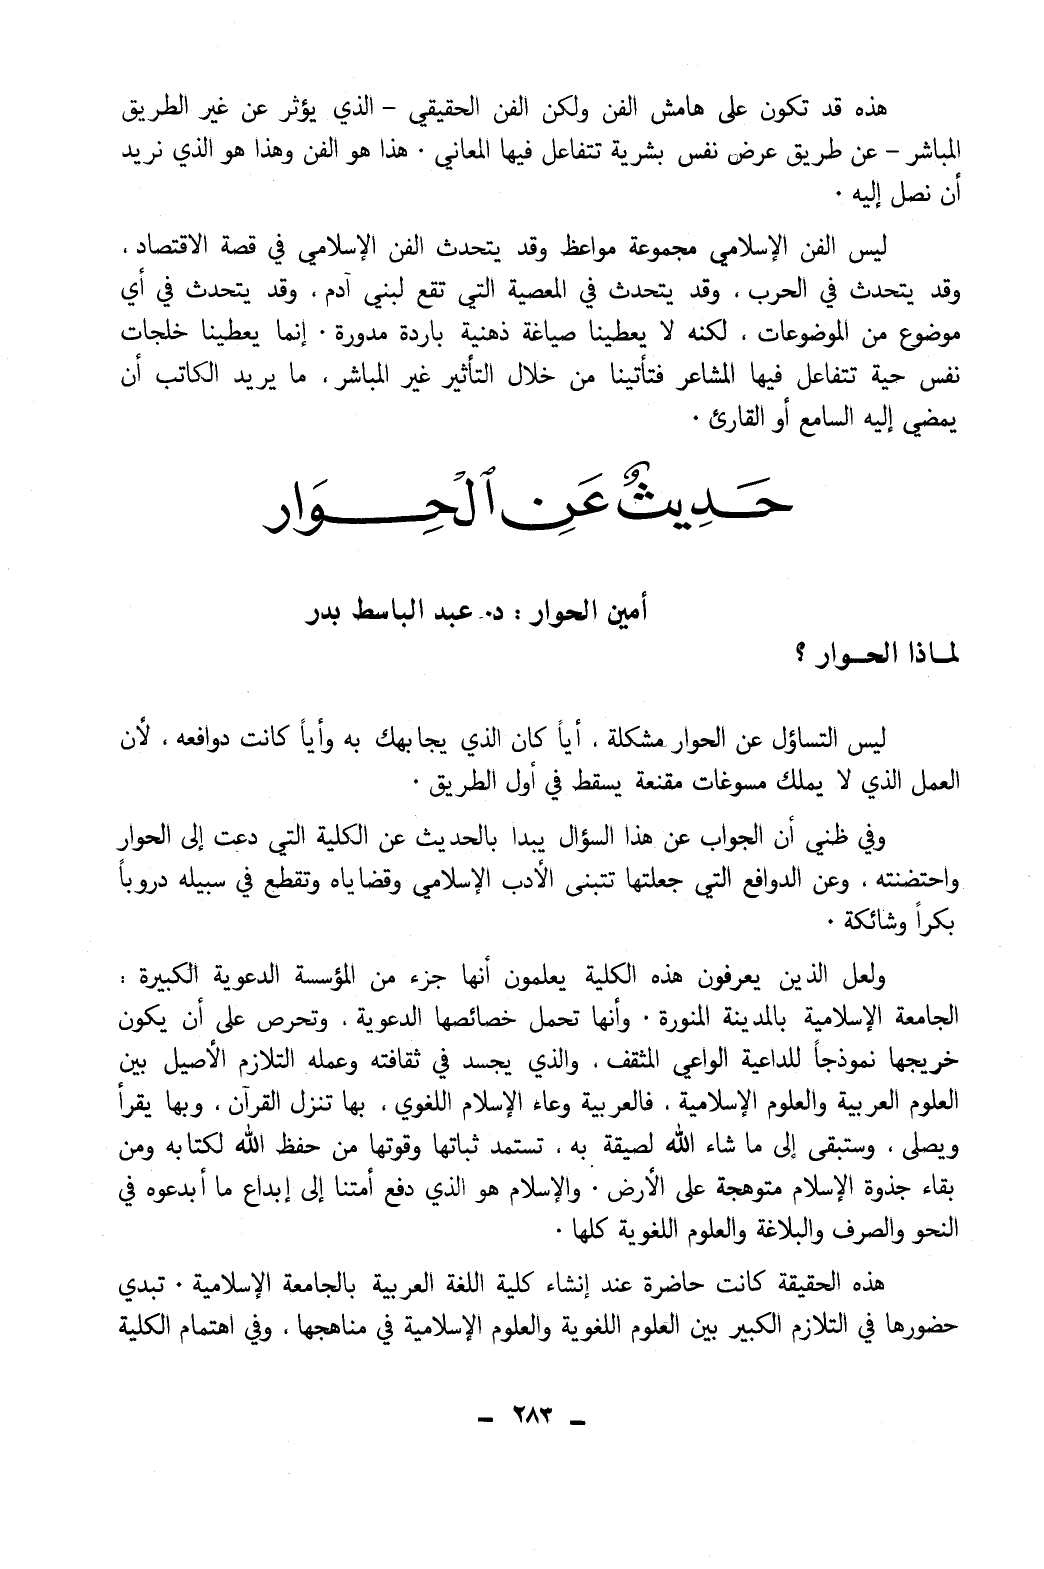 هذه قد تكون على هامش الفن ولكن الفن الحقيقي – الذي يؤثر عن غير الطريق
المباشر – عن طريق عرض نفس بشرية تتفاعل فيها المعاني . هذا هو الفن وهذا هو الذي نريد
أن نصل إليه .
ليس الفن الإسلامي مجموعة مواعظ وقد يتحدث الفن الإسلامي في قصة الاقتصاد ،
وقد يتحدث في الحرب ، وقد يتحدث في المعصية التي تقع لبني آدم ، وقد يتحدث في أي
موضوع من الموضوعات ، لكنه لا يعطينا صياغة ذهنية باردة مدورة . إنما يعطينا خلجات
نفس حية تتفاعل فيها المشاعر فتأتينا من خلال التأثير غير المباشر ، ما يريد الكاتب أن
يمضي إليه السامع أو القارئ .
حَدِيثٌ عَنِ الْحِوَار
أمين الحوار : د. عبد الباسط بدر
لمـاذا الحـوار ؟
ليس التساؤل عن الحوار مشكلة ، أياً كان الذي يجابهك به وأياً كانت دوافعه ، لأن
العمل الذي لا يملك مسوغات مقنعة يسقط في أول الطريق .
وفي ظني أن الجواب عن هذا السؤال يبدا بالحديث عن الكلية التي دعت إلى الحوار
واحتضنته ، وعن الدوافع التي جعلتها تتبنى الأدب الإسلامي وقضاياه وتقطع في سبيله دروباً
بكراً وشائكة .
ولعل الذين يعرفون هذه الكلية يعلمون أنها جزء من المؤسسة الدعوية الكبيرة :
الجامعة الإسلامية بالمدينة المنورة . وأنها تحمل خصائصها الدعوية ، وتحرص على أن يكون
خريجها نموذجاً للداعية الواعي المثقف ، والذي يجسد في ثقافته وعمله التلازم الأصيل بين
العلوم العربية والعلوم الإسلامية ، فالعربية وعاء الإسلام اللغوي ، بها تنزل القرآن ، وبها يقرأ
ويصلى ، وستبقى إلى ما شاء الله لصيقة به ، تستمد ثباتها وقوتها من حفظ الله لكتابه ومن
بقاء جذوة الإسلام متوهجة على الأرض . والإسلام هو الذي دفع أمتنا إلى إبداع ما أبدعوه في
النحو والصرف والبلاغة والعلوم اللغوية كلها .
هذه الحقيقة كانت حاضرة عند إنشاء كلية اللغة العربية بالجامعة الإسلامية . تبدي
حضورها في التلازم الكبير بين العلوم اللغوية والعلوم الإسلامية في مناهجها ، وفي اهتمام الكلية
– ٢٨٣ –